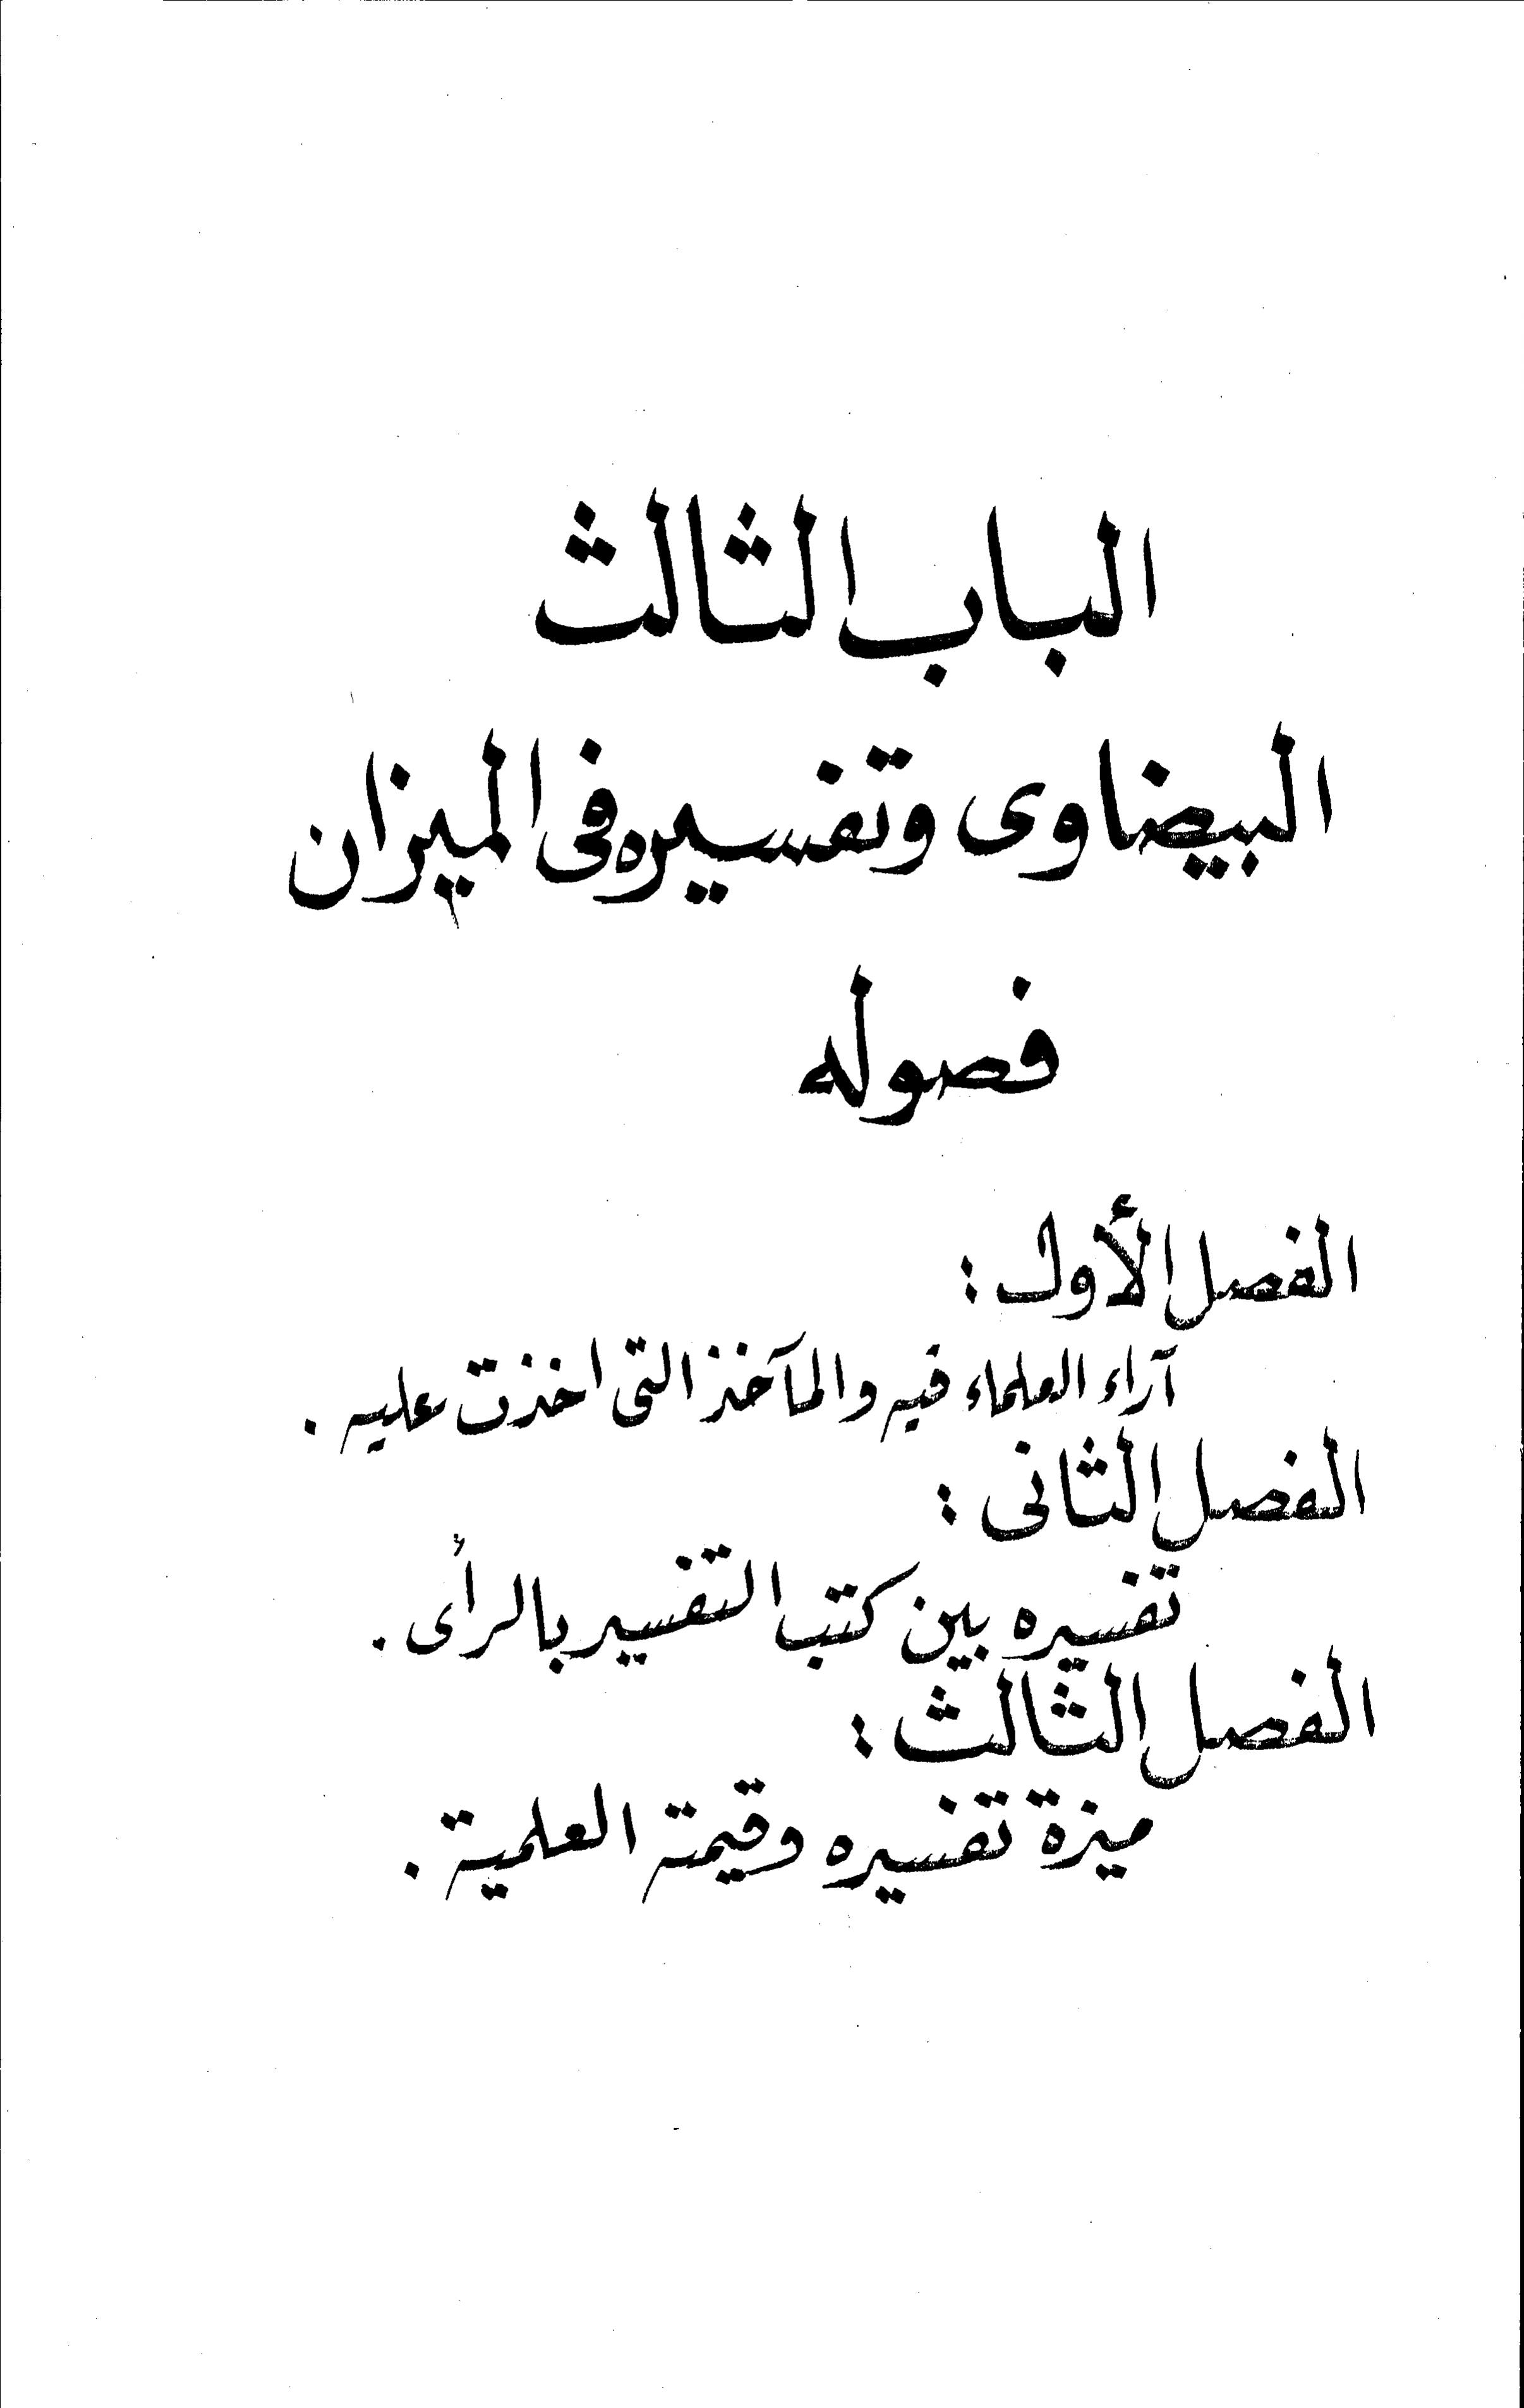 الباب الثالث
البيضاوى وتفسيره فى الميزان
فصوله
الفصل الأول :
آراء العلماء فيه والمآخذ التى اخذت عليه .
الفصل الثانى :
تفسيره بين كتب التفسير بالرأى .
الفصل الثالث :
ميزة تفسيره وقيمته العلمية .